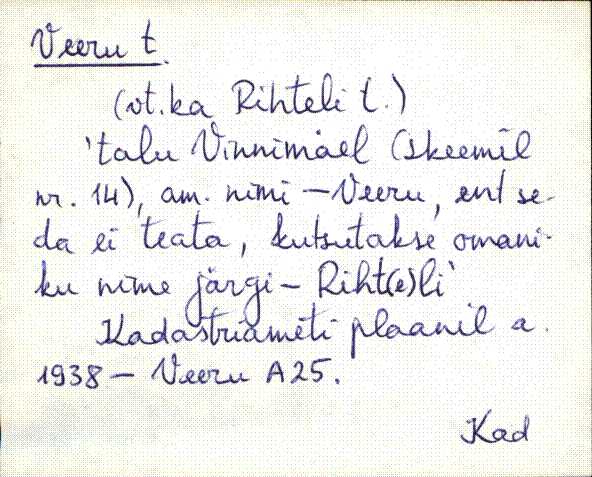 Veeru t.
(vt. ka Rihteli t.)
'talu Vinnimäel (skeemil
nr. 14), am. nimi – Veeru, ent se-
da ei teata, kutsutakse omani-
ku nime järgi – Riht(e)li'
Kadastriameti plaanil a.
1938 – Veeru A25.
Kad